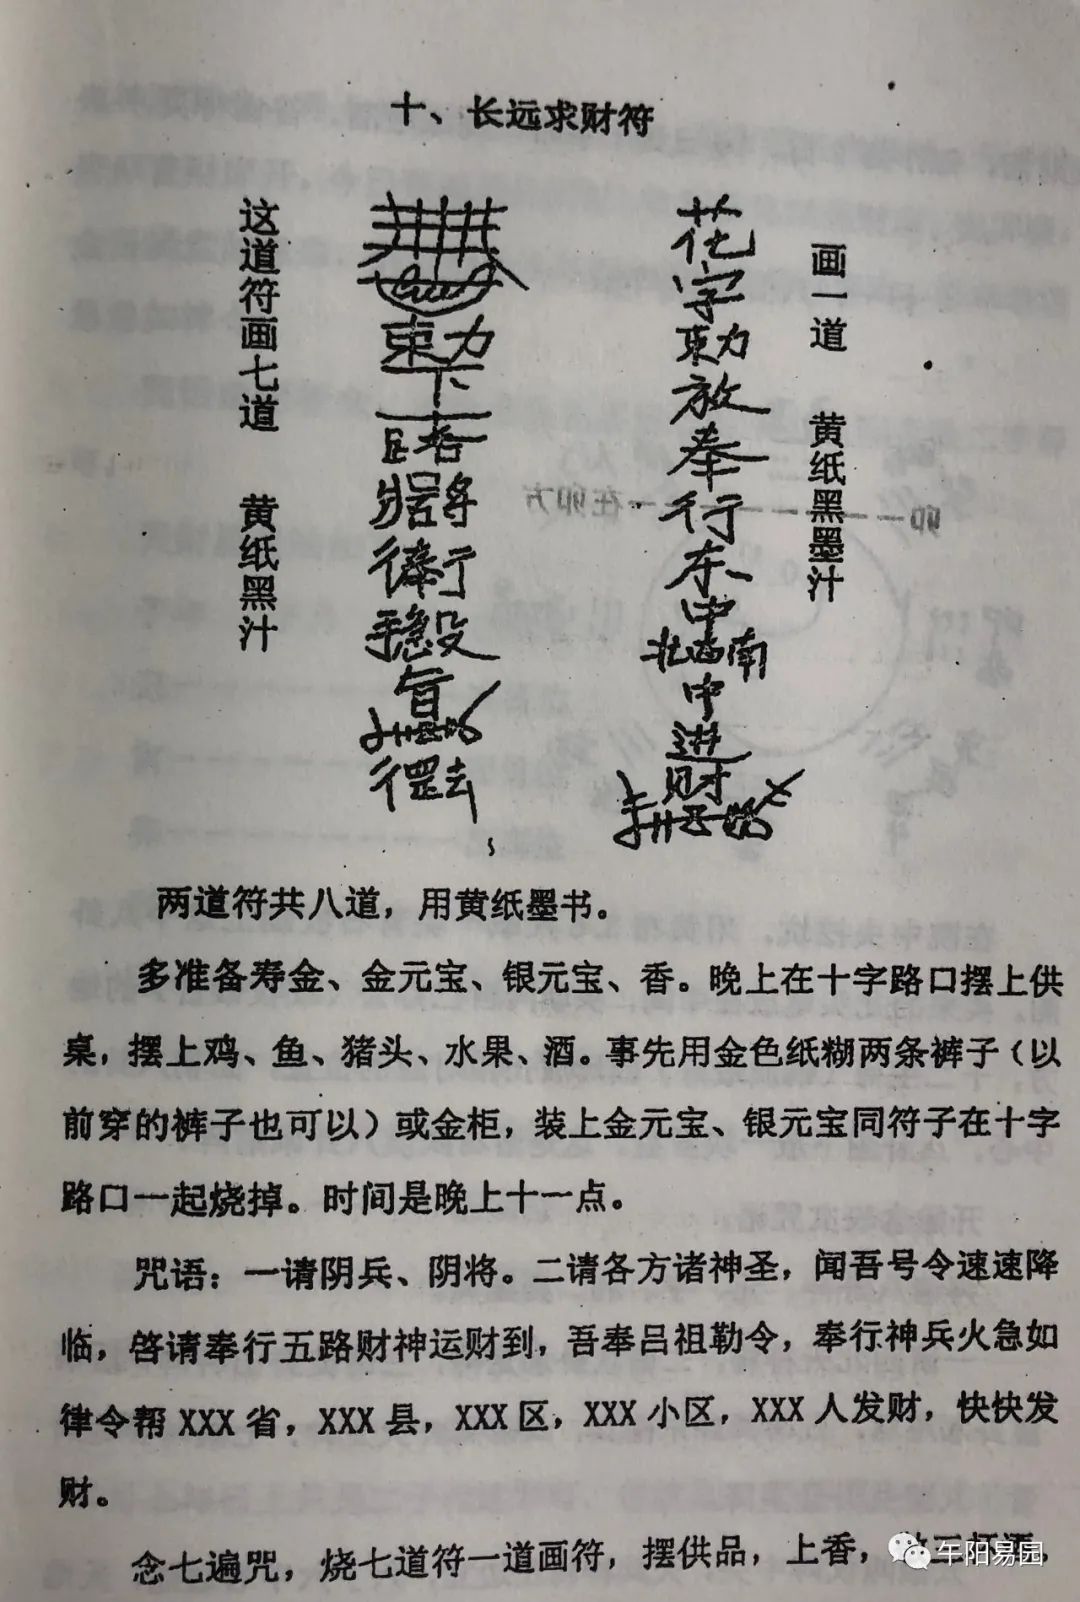 十、长远求财符
画一道 黄纸黑墨汁
花字勅放奉行东中北西南中进财
这道符画七道 黄纸黑汁
两道符共八道，用黄纸墨书。
多准备寿金、金元宝、银元宝、香。晚上在十字路口摆上供
桌，摆上鸡、鱼、猪头、水果、酒。事先用金色纸糊两条裤子（以
前穿的裤子也可以）或金柜，装上金元宝、银元宝同符子在十字
路口一起烧掉。时间是晚上十一点。
咒语：一请阴兵、阴将。二请各方诸神圣，闻吾号令速速降
临，啓请奉行五路财神运财到，吾奉吕祖勒令，奉行神兵火急如
律令帮 XXX 省，XXX 县，XXX 区，XXX 小区，XXX 人发财，快快发
财。
念七遍咒，烧七道符一道画符，摆供品，上香，
午阳易园